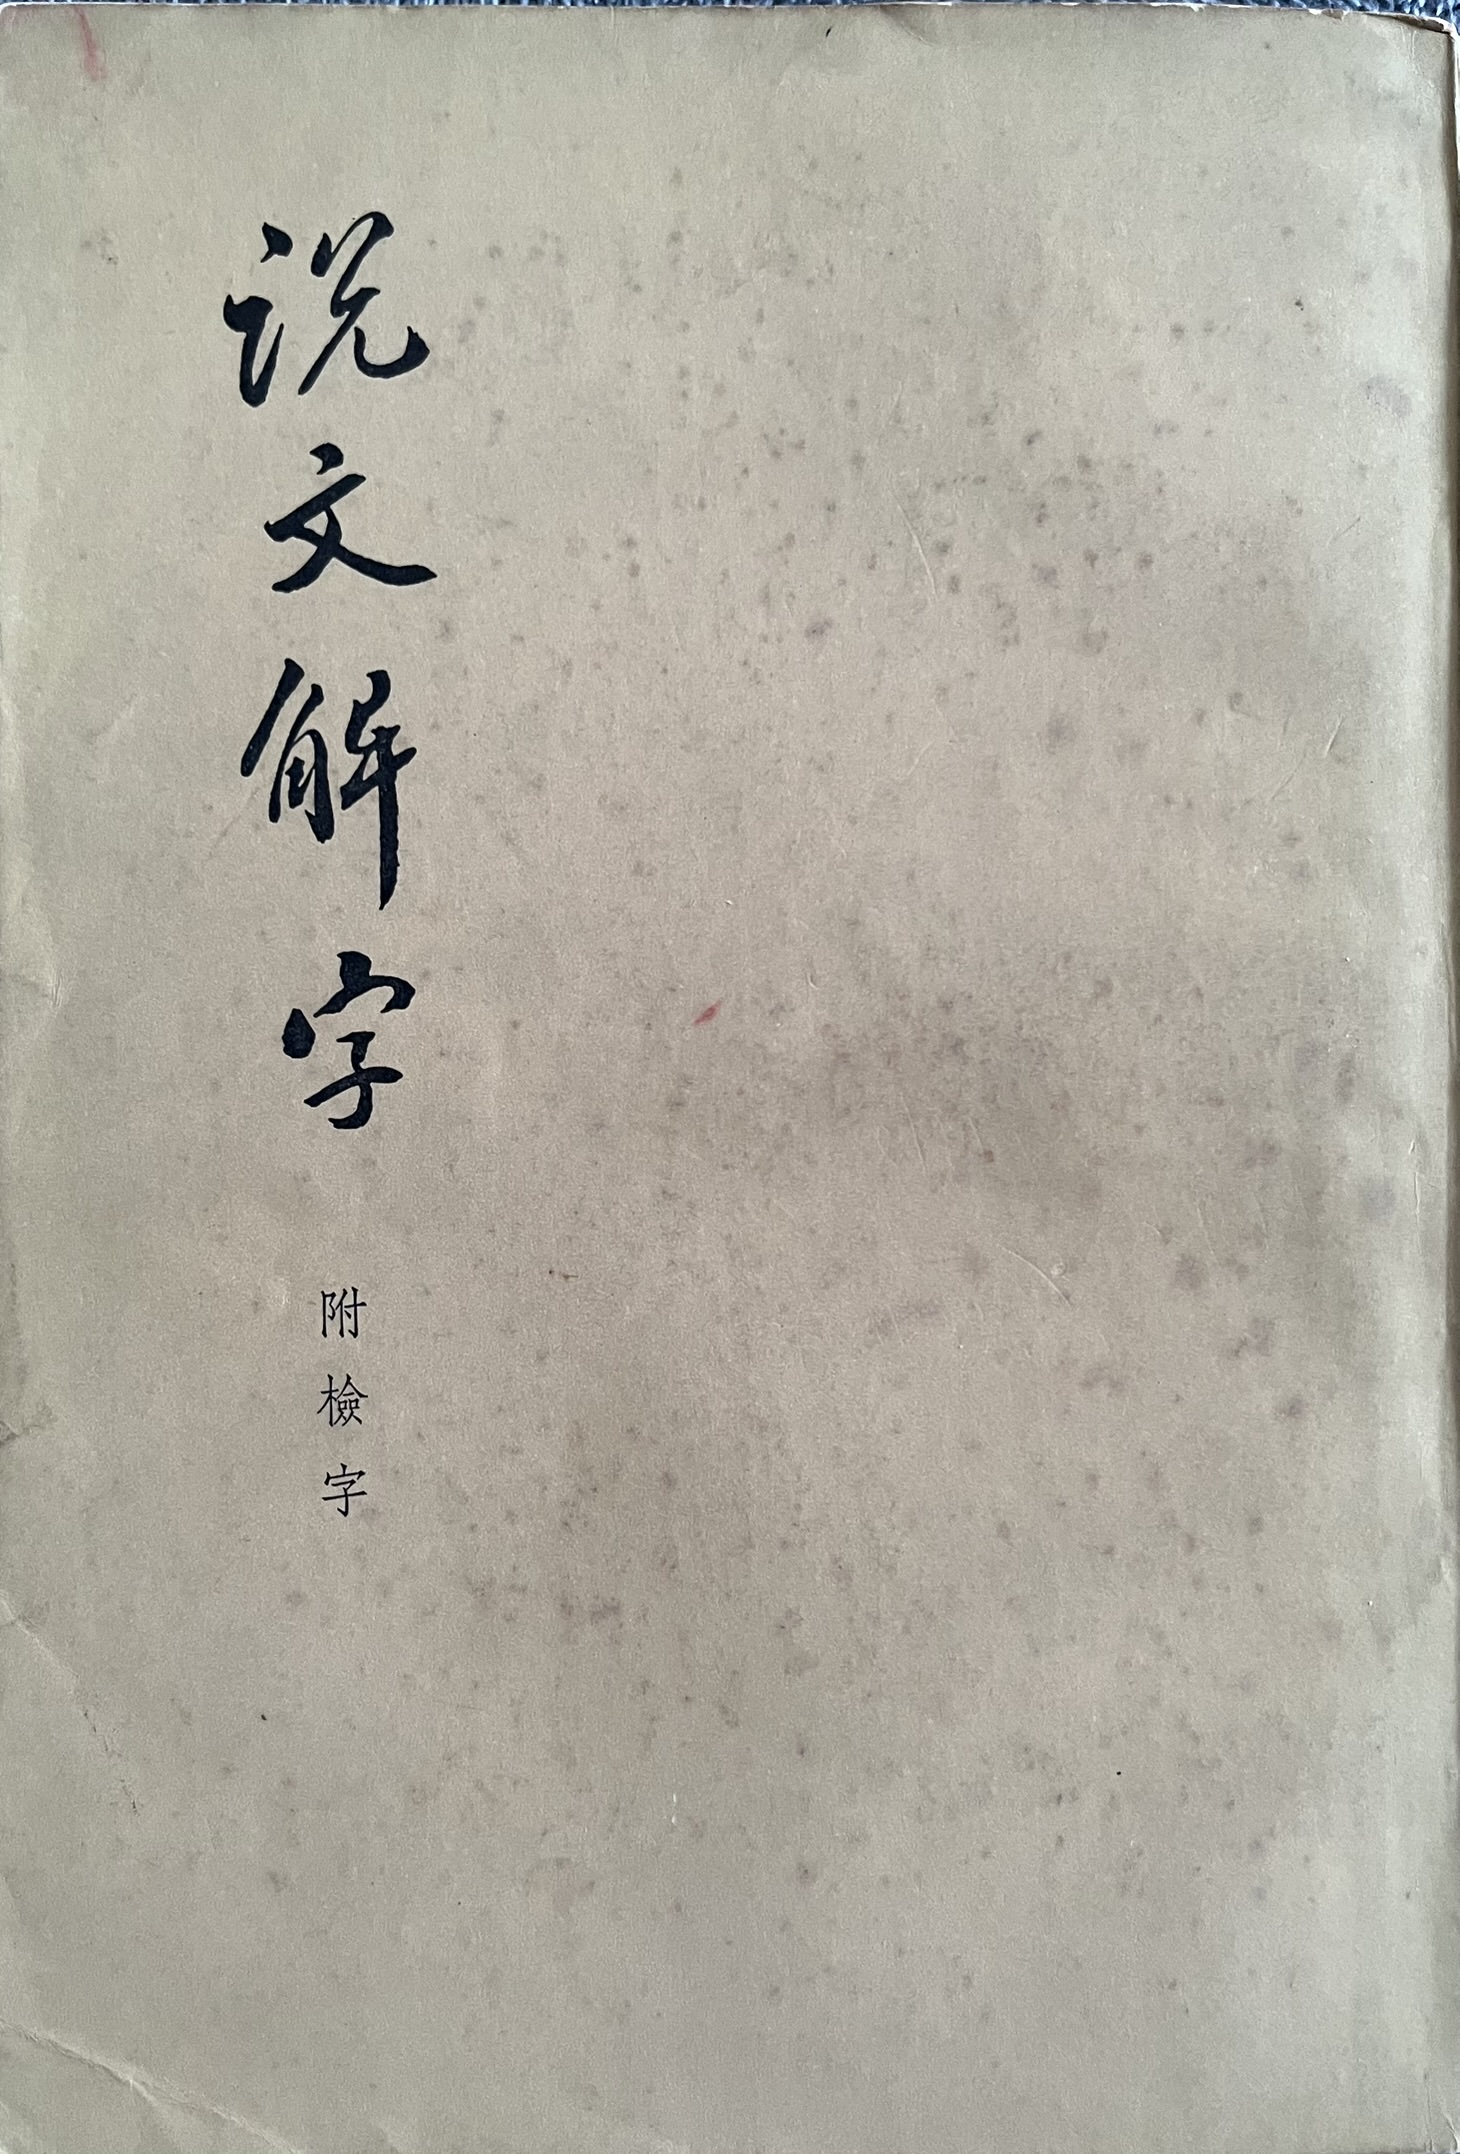 説文解字
附檢字